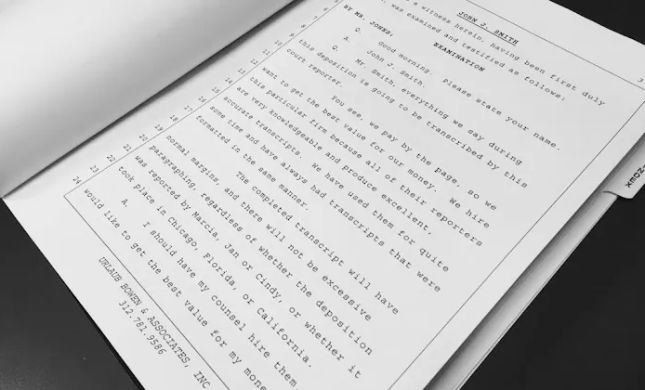 JOHN J. SMITH
a witness herein, having been first duly
was examined and testified as follows:
EXAMINATION
BY MR. JONES:
Q. Good morning, please state your name.
A. John J. Smith.
Q. Mr. Smith, everything we say during
this deposition is going to be transcribed by this
court reporter.
You see, we pay by the page, so we
want to get the best value for our money. We hire
this particular firm because all of their reporters
are very knowledgeable and produce excellent,
accurate transcripts. We have used them for quite
some time and have always had transcripts that were
formatted in the same manner.
The completed transcript will have
normal margins, and there will not be excessive
paragraphing, regardless of whether the deposition
was reported by Marcia, Jan or Cindy, or whether it
took place in Chicago, Florida, or California.
A. I should have my counsel hire them.
would like to get the best value for my money
URLAUB BOWEN & ASSOCIATES, INC
312.781.9586
3
7
8
9
10
11
12
13
14
15
16
17
18
19
20
21
22
23
24